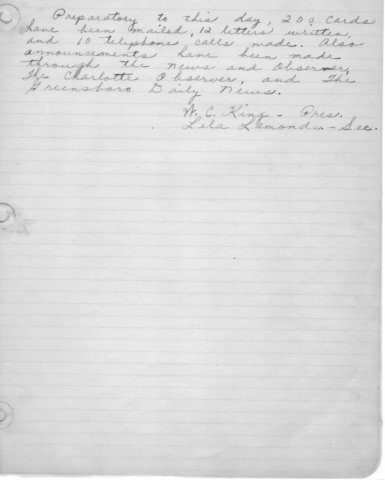 Preparatory to this day, 200 cards
have been mailed, 12 letters written,
and 10 telephone calls made. Also
announcements have been made
through the News and Observer,
The Charlotte Observer, and The
Greensboro Daily News.
W. C. King - Pres.
Lela Lamonds - Sec.